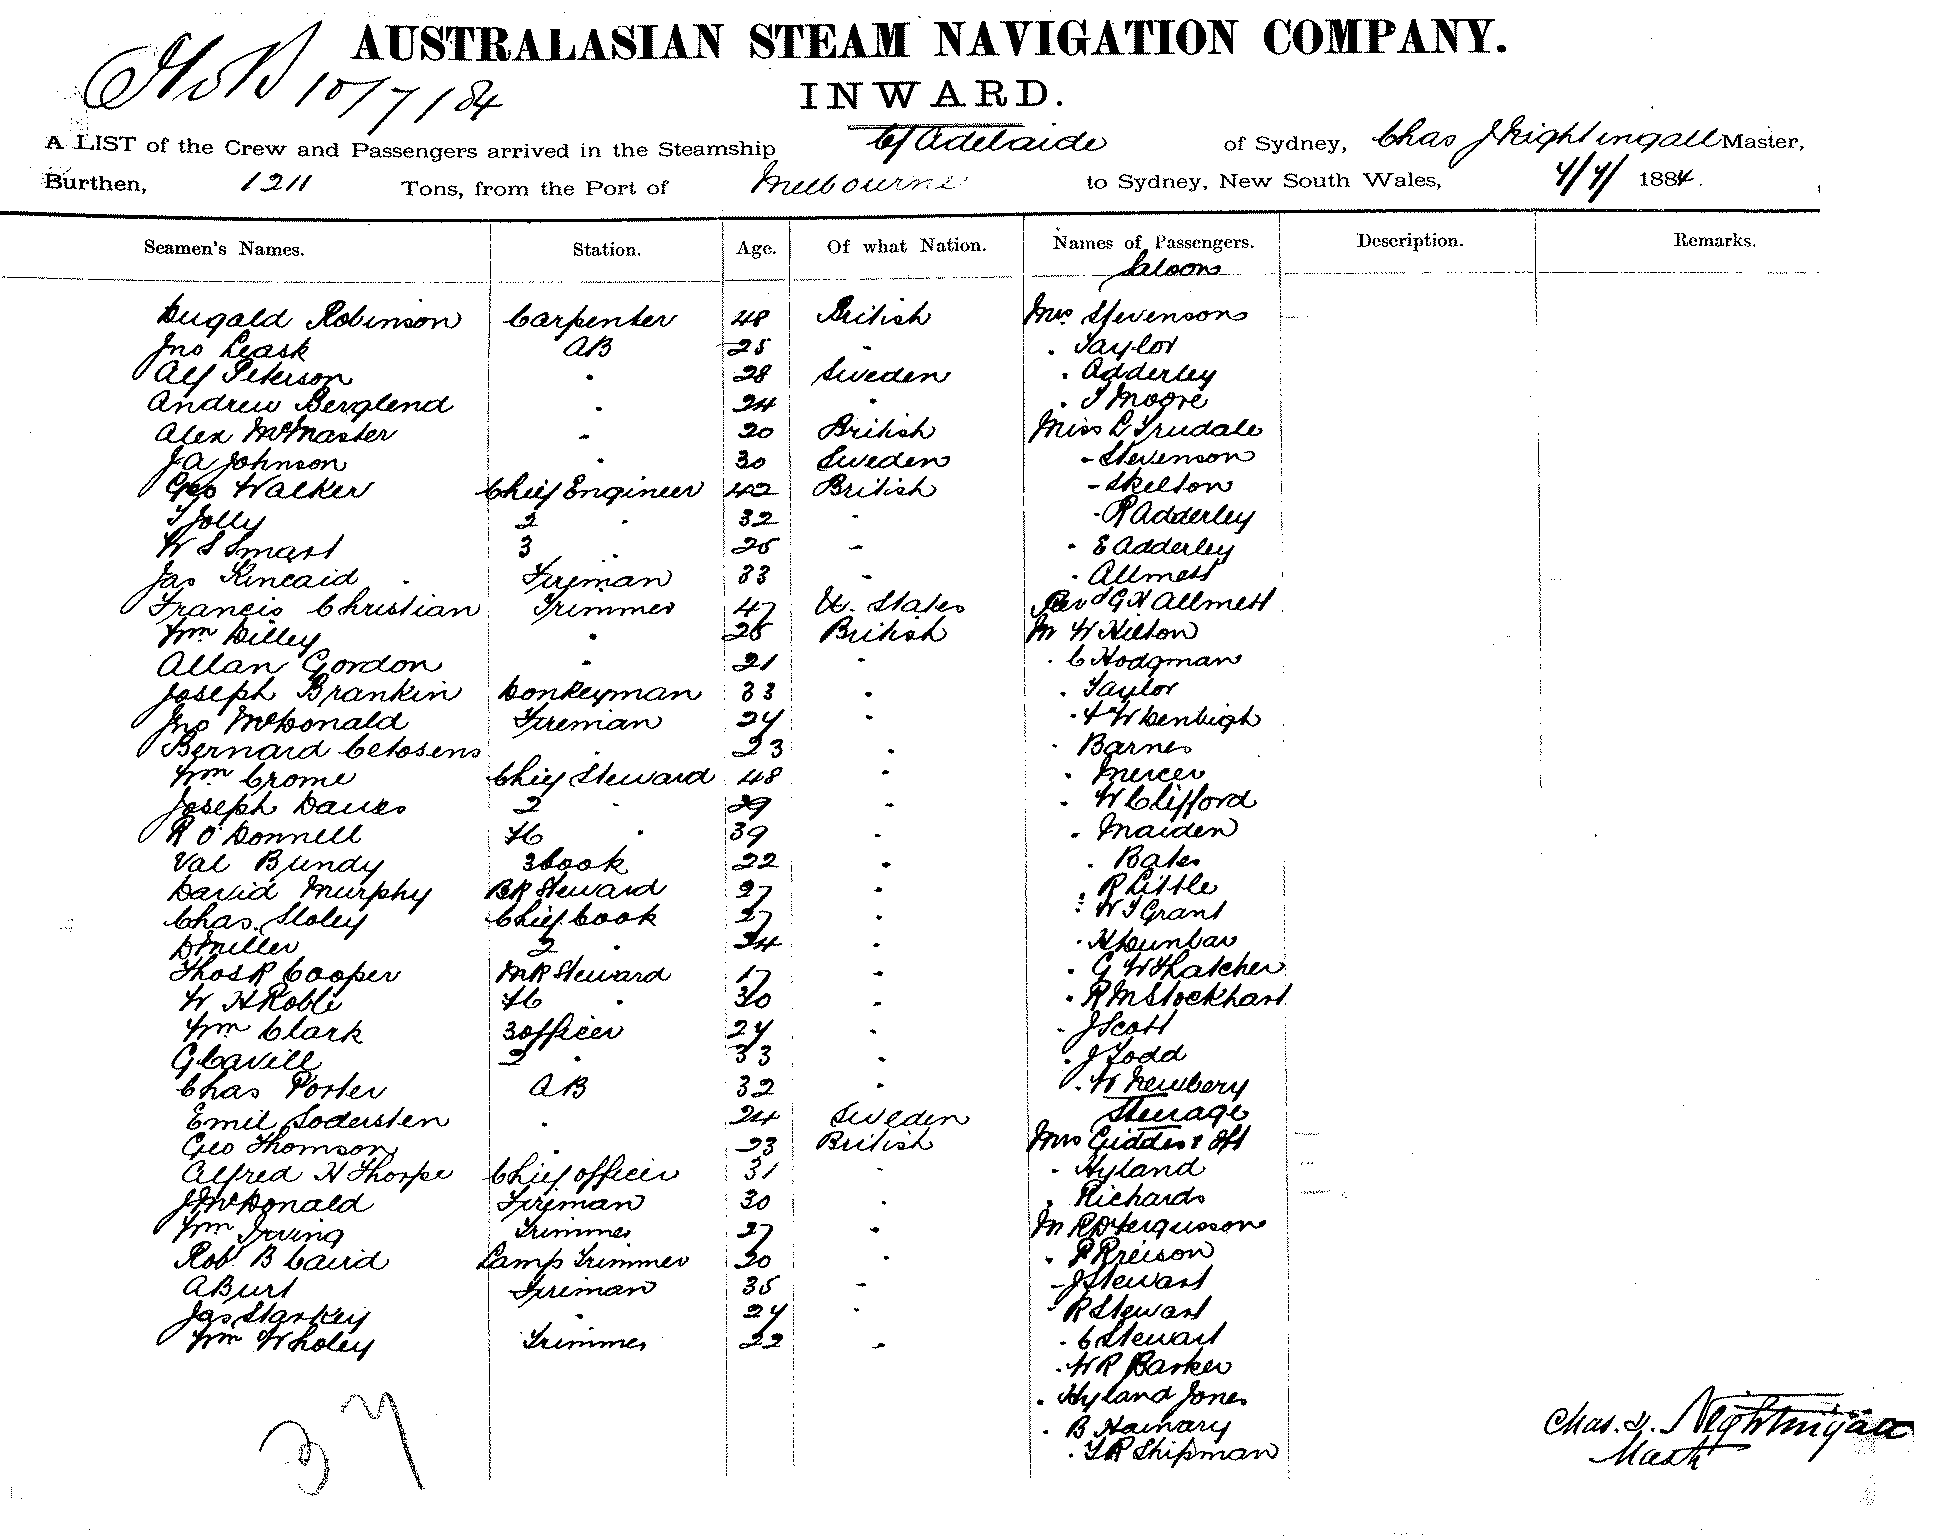 AUSTRALASIAN STEAM NAVIGATION COMPANY.
10/7/84
INWARD.
A LIST of the Crew and Passengers arrived in the Steamship C/ Adelaide of Sydney, Chas J Nightingall Master,
Burthen, 1211 Tons, from the Port of Melbourne to Sydney, New South Wales, 7/7/ 1884.
Seamen's Names. Station. Age. Of what Nation. Names of Passengers. Description. Remarks.
Saloon
Dugald Robinson Carpenter 48 British Mrs Stevenson
Jno Leask AB 25 " " Taylor
Alf Peterson " 28 Sweden " Adderley
Andrew Berglend " 24 " " T Moore
Alex McMaster " 20 British Miss L Trudale
J A Johnson " 30 Sweden " Stevenson
Geo Walker Chief Engineer 42 British " Skelton
T Jolly 2 " 32 " " R Adderley
W S Smart 3 " 25 " " E Adderley
Jas Kincaid Fireman 33 " " Allmett
Francis Christian Trimmer 47 U. States Revd G H Allmett
Wm Dilley " 25 British Mr W Hilton
Allan Gordon " 21 " " C Hodgman
Joseph Brankin Donkeyman 33 " " Taylor
Jno McDonald Fireman 27 " " W Denbigh
Bernard " 23 " " Barnes
Wm Crome Chief Steward 48 " " Mercer
Joseph Davies 2 " 29 " " W Clifford
R O'Donnell " 39 " " Maiden
Val Bundy 3 Cook 22 " " Bates
David Murphy BR Steward 27 " " R Little
Chas Sloley Chief Cook 37 " " W T Grant
D Miller 2 " 24 " " H Dunbar
Thos R Cooper MR Steward 17 " " G W Thatcher
W H Roble " 30 " " R M Stockhart
Wm Clark 3 officer 27 " " J Scott
G Cavill 2 " 33 " " J Todd
Chas Porter AB 32 " " W Newbery
Emil Sodersten " 24 Sweden Steerage
Geo Thomson 23 British Mrs Giddes &
Alfred H Thorpe Chief officer 31 " " Hyland
J McDonald Fireman 30 " " Richards
Wm Irving Trimmer 27 " Mr R D Fergusson
Rob. B Caird Lamp Trimmer 20 " " P
A Burt Fireman 35 " " J Stewart
Jas Starkey " 27 " " R Stewart
Wm Wholey Trimmer 22 " " C Stewart
" W R Barker
" Hyland Jones
" B
" T R Shipman
37
Chas. J. Nightingall
Master